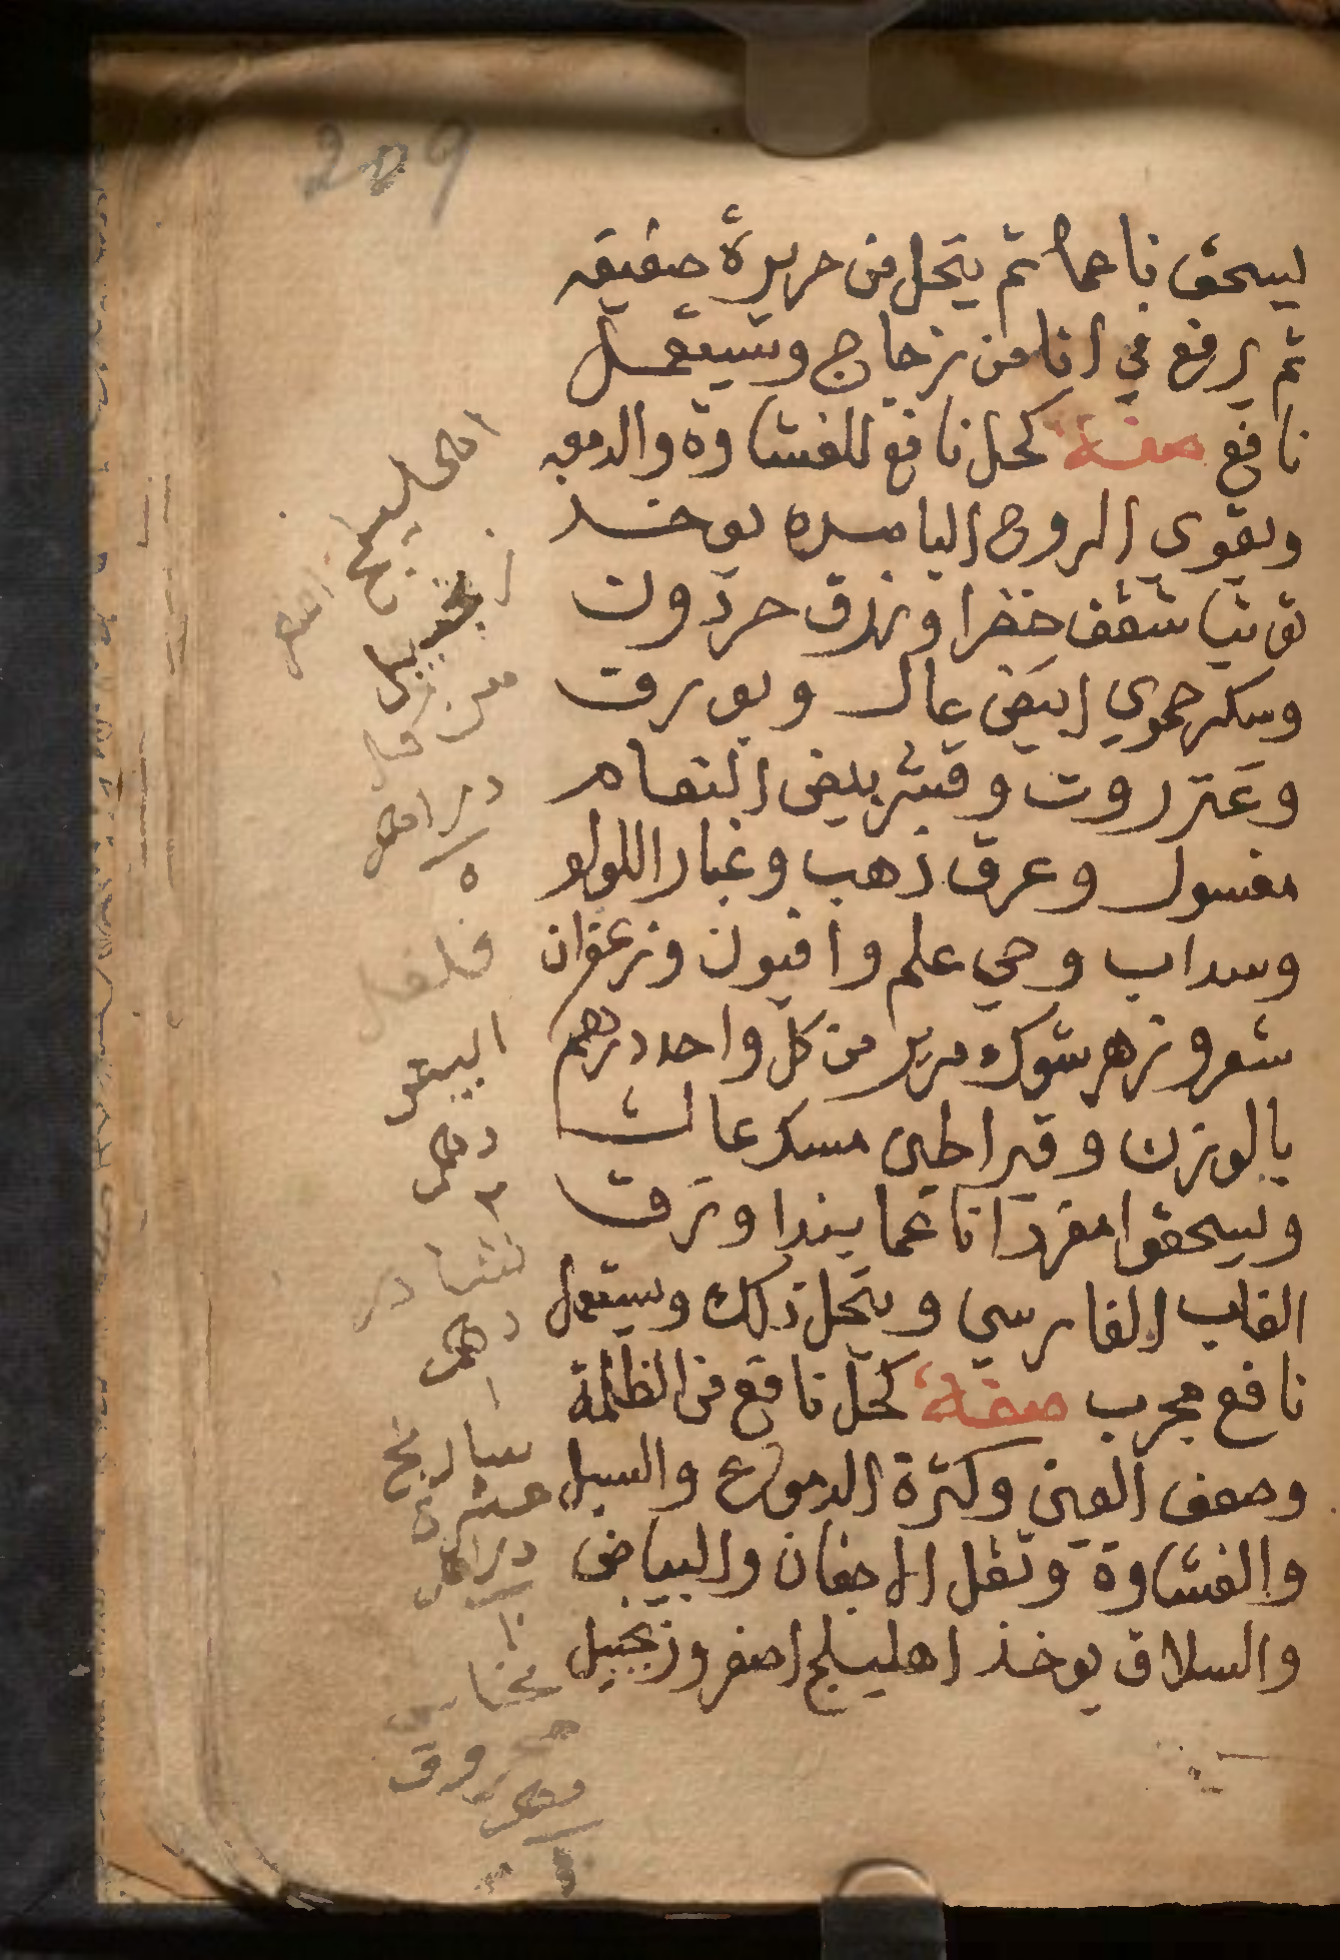 209
يسحق ناعما ثم ينخل من حريرة صفيقه
ثم يرفع في انا من زجاج ويستعمل
نافع صفة كحل نافع للغشاوة والدمعه
ويقوي الروح الباصره يوخد
توتيا شقف خضرا وزرق حردون
وسكر حموي ابيض عال وبورق
وعنزروت وقشر بيض النعام
مغسول وعرق ذهب وغبار اللولو
وسداب وحي علم وافيون وزعفران
شعر وزهر شوك مرير من كل واحد درهم
بالوزن وقيراطين مسك عال
ويسحقوا مفردا ناعما بندا ورق
القلب الفارسي وينخل ذلك ويستعمل
نافع مجرب صفة كحل نافع من الظلمة
وضعف العين وكثرة الدموع والسبل
والغشاوة وثقل الاجفان والبياض
والسلاق يوخذ اهليلج اصفر وزنجبيل
اهليلج
اصفر
زنجبيل
من كل
دراهم
٥
فلفل
ابيض
درهم
٢
نشادر
درهم
١
ساذنج
عشرة
دراهم
١٠
نحاس
محروق